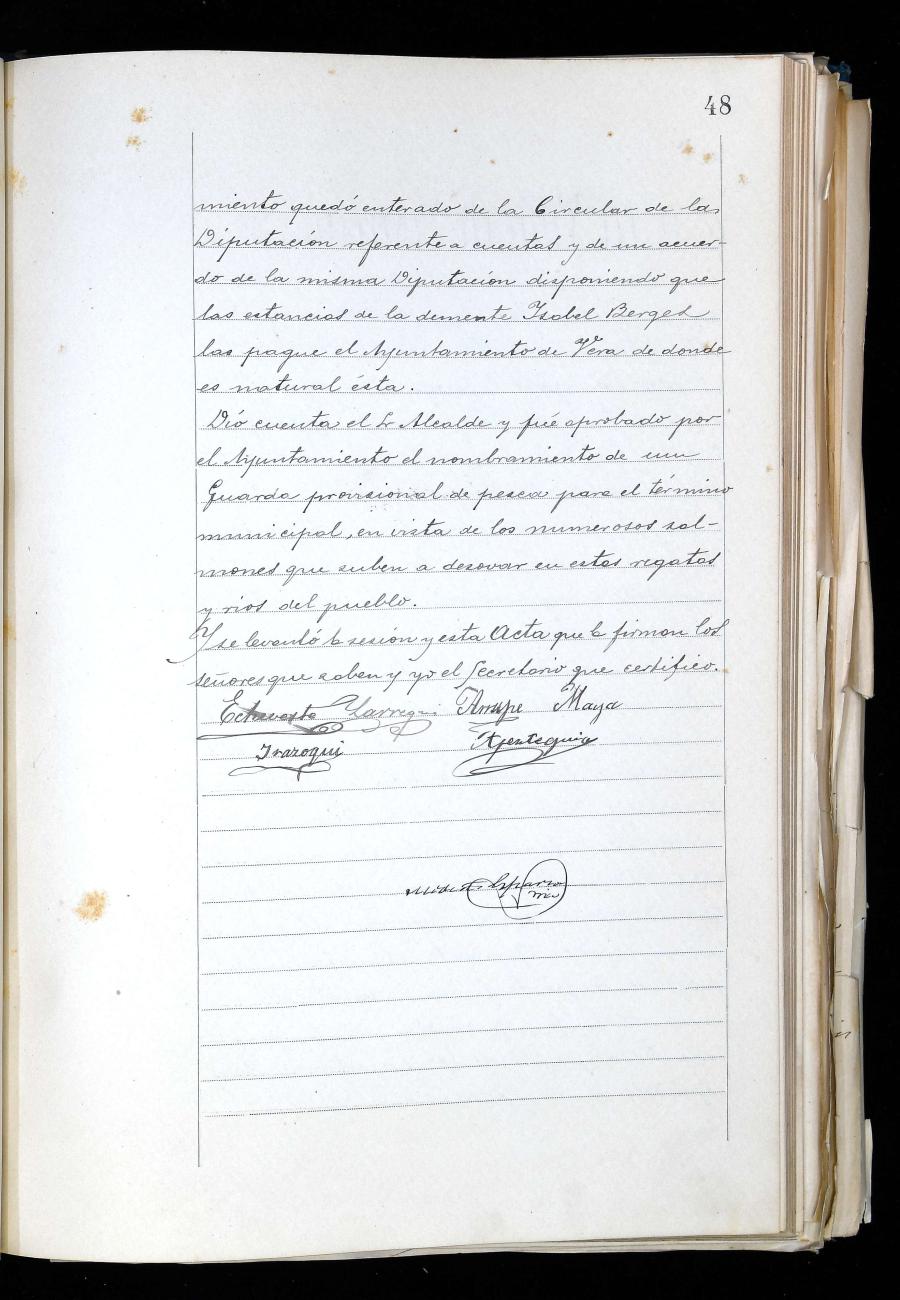 48
miento quedó enterado de la Circular de las
Diputación referente a cuentas y de un acuer-
do de la misma Diputación disponiendo que
las estancias de la demente Isabel Berges
las pague el Ayuntamiento de Vera de donde
es natural ésta.
Dió cuenta el Sr Alcalde y fué aprobado por
el Ayuntamiento el nombramiento de un
Guarda provisional de pesca para el término
municipal, en vista de los numerosos sal-
mones que suben a desovar en estas regatas
y rios del pueblo.
Y se levantó la sesión y esta Acta que la firman los
señores que saben y yo el Secretario que certifico.
Echaveste Larregui Arrupe Maya
Irazoqui Apezteguia